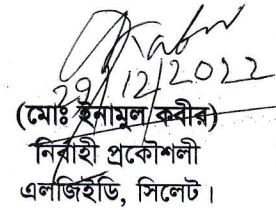 29/12/2022
(মোঃ ইনামুল কবীর)
নির্বাহী প্রকৌশলী
এলজিইডি, সিলেট।